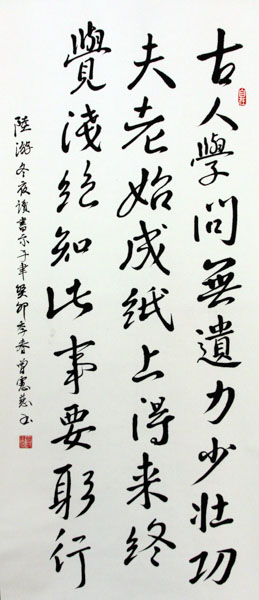 古人學問無遺力少壯功
夫老始成紙上得來終
覺淺絕知此事要躬行
陸游冬夜讀書示子聿癸卯季春曾憲書